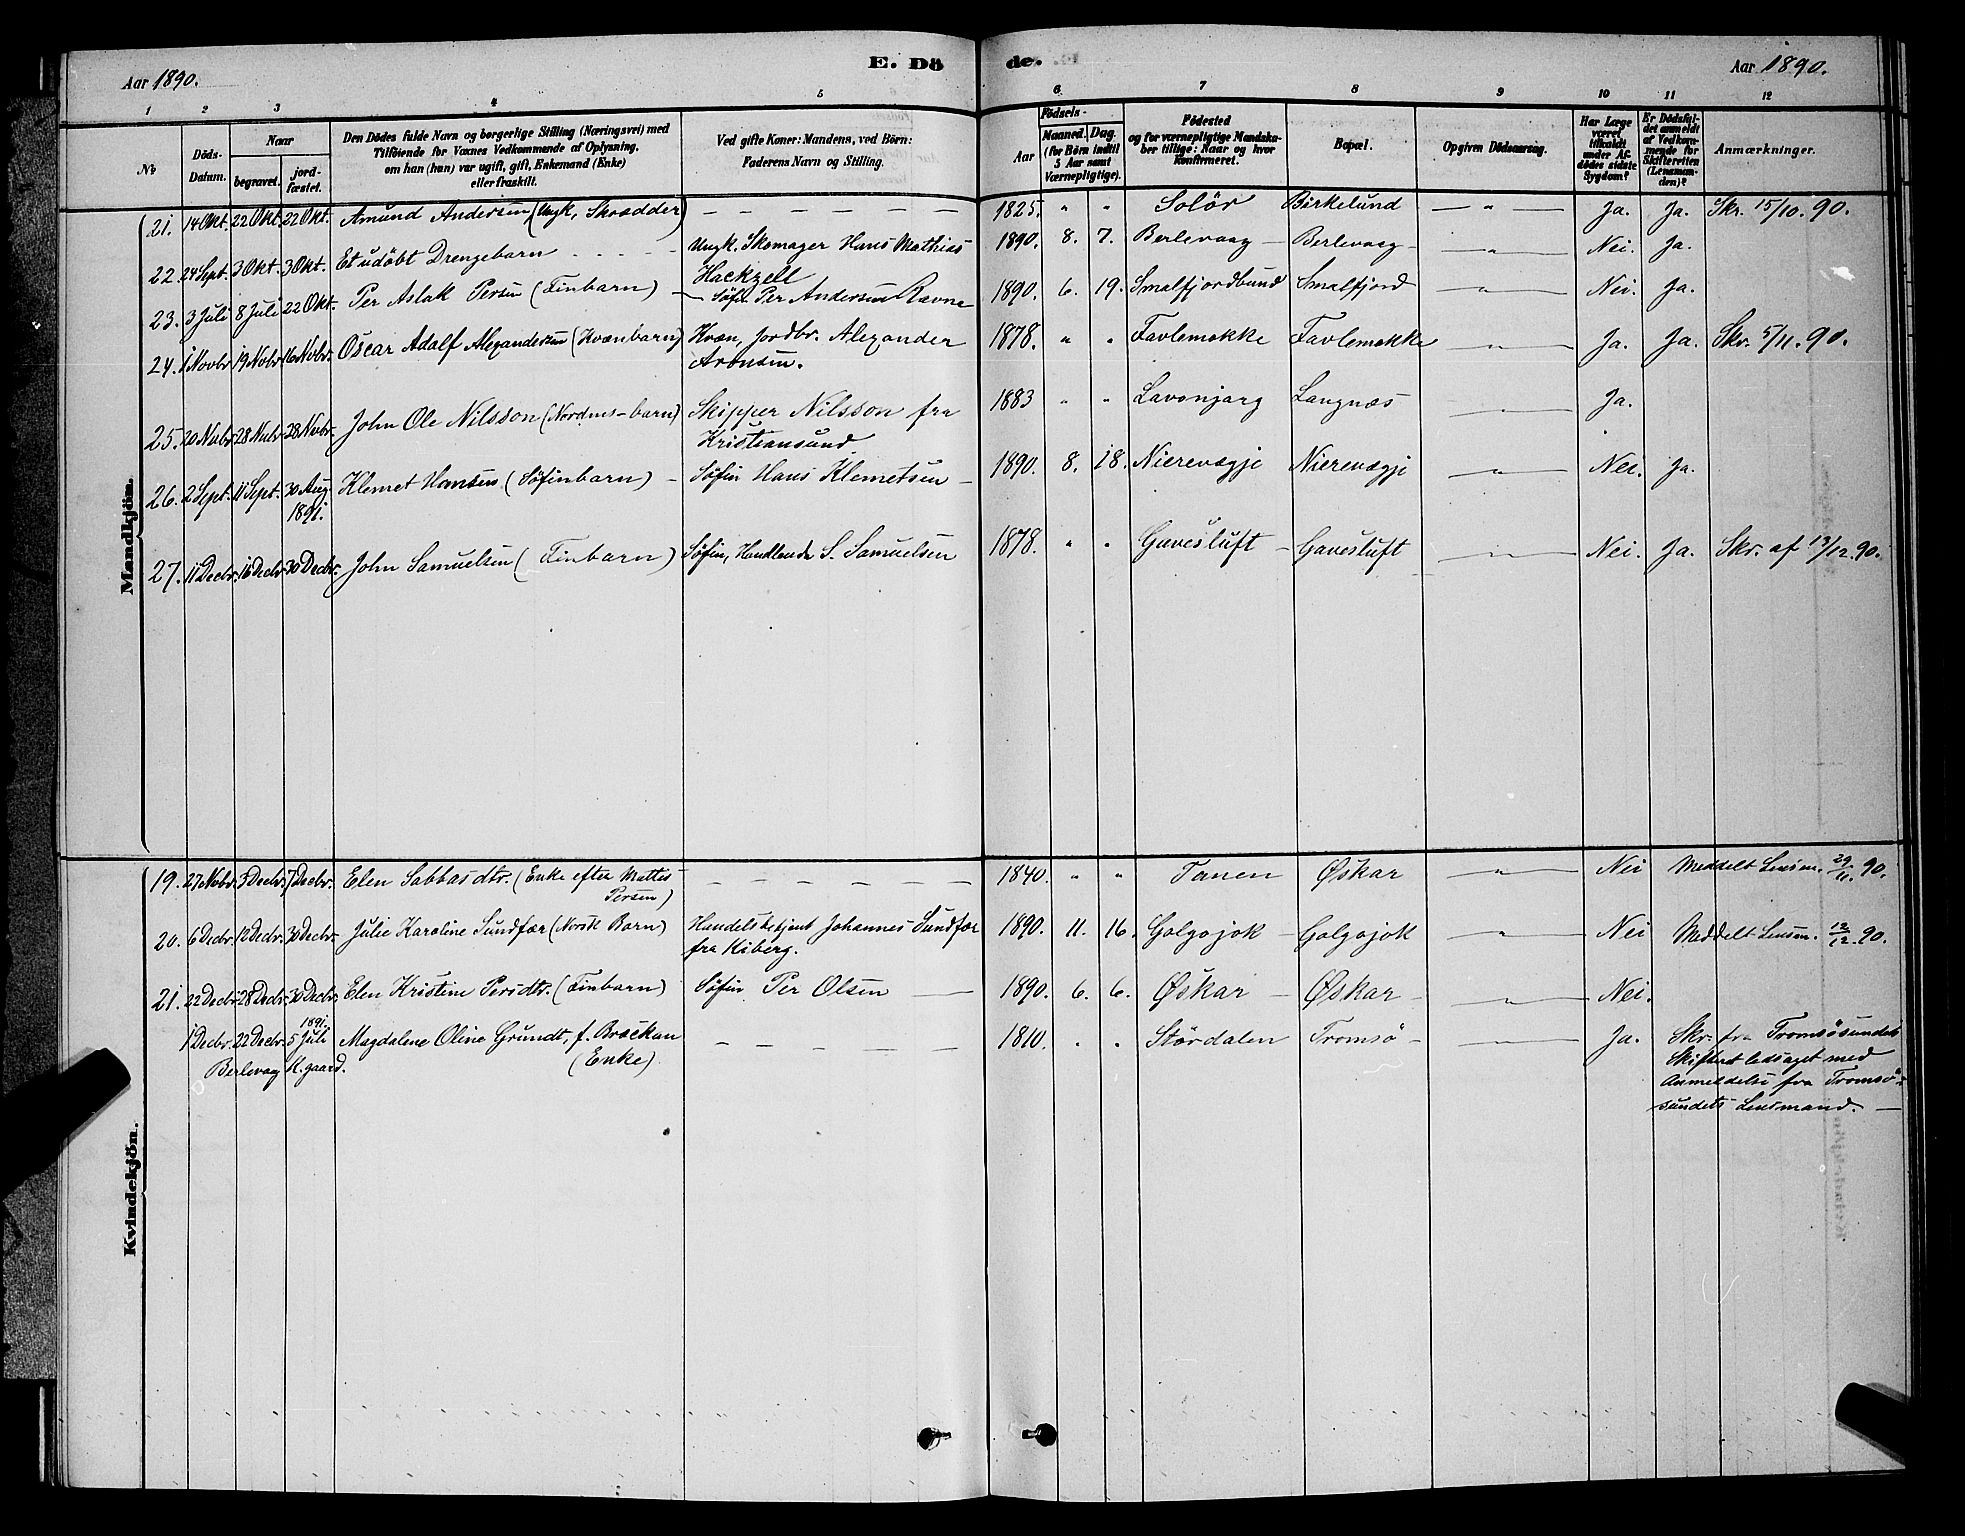 Aar 1890. E. Dö de. Aar 1890.
1 2 3 4 5 6 7 8 9 10 11 12
No Döds-Datum. Naar begravet. jordfæstet. Den Dödes fulde Navn og borgerlige Stilling (Næringsvei) med Tilföiende for Voxnes Vedkommende af Oplysning, om han (hun) var ugift, gift, Enkemand (Enke) eller fraskilt. Ved gifte Koner: Mandens, ved Börn: Faderens Navn og Stilling. Födsels- Aar Maaned. Dag. (for Börn indtil 5 Aar samt Værnepligtige). Födested og for værnepligtige Mandskaber tillige: Naar og hvor Konfirmeret. Bopæl. Opgiven Dödsaarsag. Har Læge været tilkaldt under Afdödes sidste Sygdom? Er Dödsfaldet anmeldt af Vedkommende for Skifteretten (Lensmanden)? Anmærkninger.
Mandkjön.
21. 14 Okt. 22 Okt. 22 Okt. Amund Andersen (Ungk, Skrædder) — — — — — 1825. " " Solör Birkelund — " — Ja. Ja. Skr. 15/10. 90.
22. 24 Sept. 3 Okt. 3 Okt. Et udöbt Drengebarn Ungk. Skomager Hans Mathias Hackzell 1890. 8. 7. Berlevaag Berlevaag — " — Nei. Ja.
23. 3 Juli 8 Juli 22 Okt. Per Aslak Persen (Finbarn) Söfin Per Andersen Ravna 1890. 6. 19. Smalfjordbund Smalfjord — " — Nei. Ja.
24. 1 Novbr 19 Novbr 16 Novbr. Oscar Adolf Alexandersen (Kvænbarn) Kvæn, Jordbr. Alexander Aronsen. 1878. " " Favlemokke Favlemokke — " — Ja. Ja. Skr. 5/11. 90.
25. 20 Novbr 28 Novbr 28 Novbr. John Ole Nilsson (Nordms-barn) Skipper Nilsson fra Kristiansund. 1883 " " Lavonjarg Langnæs — " — Ja.
26. 2 Sept. 11 Sept. 30 Aug 1891. Klemet Hansen (Söfinbarn) Söfin Hans Klemetsen 1890. 8. 18. Nierevægje Nierevægje — " — Nei. Ja.
27. 11 Decbr. 16 Decbr. 30 Decbr. John Samuelsen (Finbarn) Söfin, Handlende S. Samuelsen 1878. " " Gavesluft Gavesluft — " — Nei. Ja. Skr. af 13/12. 90.
Kvindekjön.
19. 27 Novbr. 5 Decbr. 7 Decbr. Elen Sabbasdtr. (Enke efter Mattis Persen) — — — — — 1840. " " Tanen Øskar — " — Nei Meddelt Lensm. 29/11. 90.
20. 6 Decbr. 12 Decbr. 30 Decbr. Julie Karoline Sundfær (Norsk Barn) Handelsbetjent Johannes Sundfær fra Kiberg. 1890. 11. 16. Golgojok Golgojok — " — Nei Meddelt Lensm. 12/12. 90.
21. 22 Decbr. 28 Decbr. 30 Decbr. Elen Kristine Persdtr. (Finbarn) Söfin Per Olsen 1890. 6. 6. Øskar Øskar — " — Nei.
1 Decbr. 22 Decbr. 1891. 5 Juli Magdalene Oline Grundt, f. Brackan (Enke) — — — — — 1810. " " Stördalen Tromsö — " — Ja. Skr. fra Tromsösundets
Berlevag K.gaard. Skifteret ledsaget med
Anmeldelse fra Tromsö-
sundets Lensmand. —